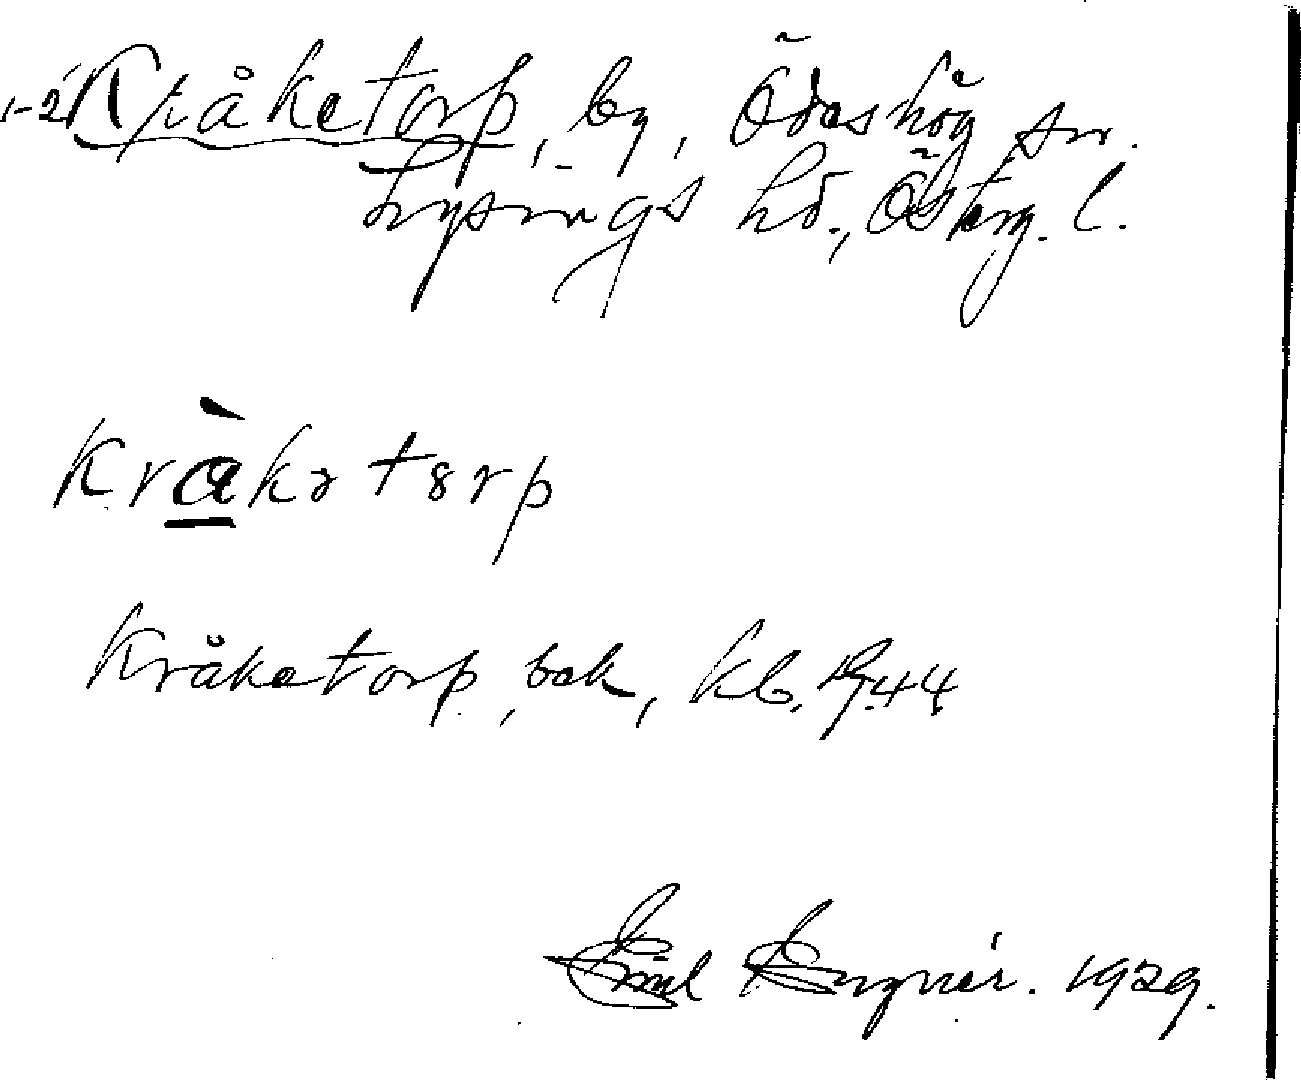 1-2 Kråketorp, by, Ödeshög sn.
Lysings hd., Österg. l.
kràkətȣrp
Kråketorp, bek, kb. 1744
Emil Lugnér. 1929.